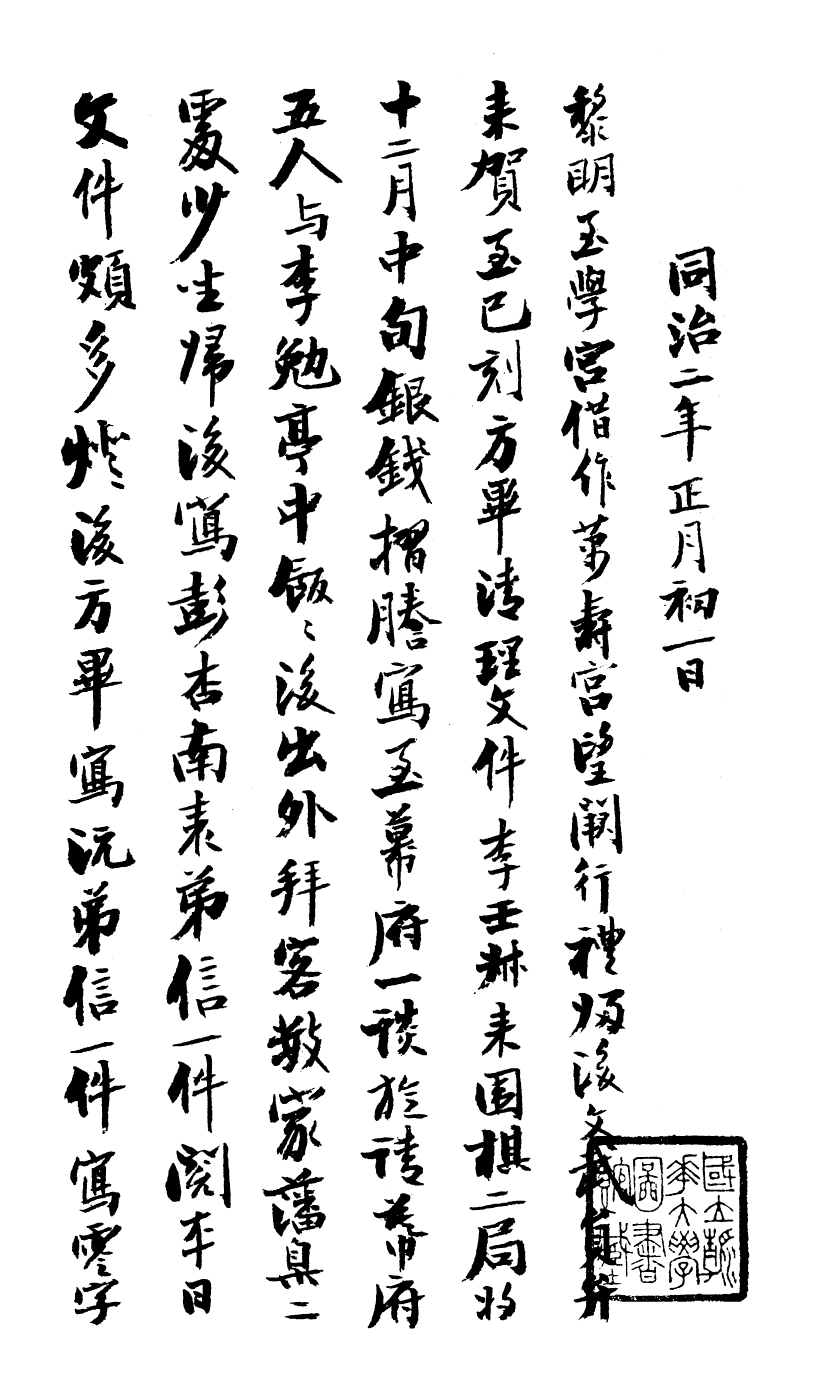 同治二年正月初一日
黎明至學宮借作萬壽宮望闕行禮歸後文武賀年
来賀至巳刻方畢清理文件李壬叔来圍棋二局將
十二月中旬銀錢摺謄寫至幕府一談旋請幕府
五人与李勉亭中飯〻後出外拜客數家藩臬二
處少坐歸後寫彭杏南表弟信一件閱本日
文件頗多燈〻後方畢寫沅弟信一件寫零字
國立
大學
圖書